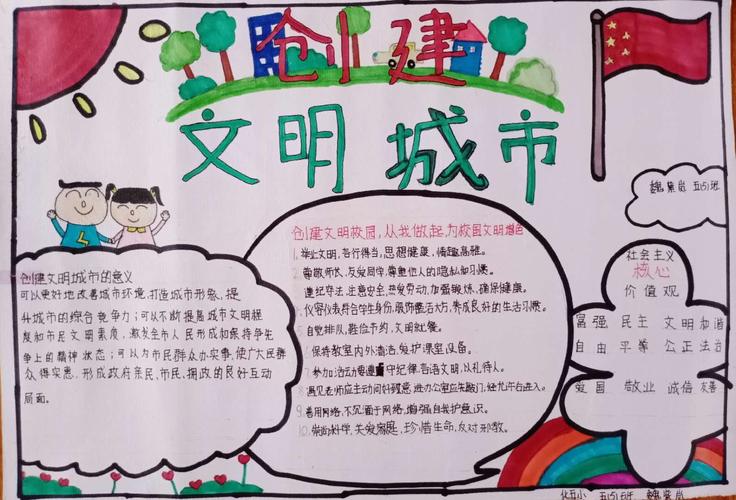 创建
文明城市
五(5)班
创建文明校园,从我做起,为校园文明增色
1.举止文明,言行得当,思想健康,情趣高雅。
2.尊敬师长,友爱同学,尊重他人的隐私和习惯。
3.遵纪守法,注意安全,热爱劳动,加强锻炼,确保健康。
4.仪容仪表符合学生身份,服饰整洁大方,养成良好的生活习惯。
5.自觉排队,鞋位予约,文明就餐。
6.保持教室内外清洁,爱护课室设备。
7.参加活动要遵守纪律,言语文明,以礼待人。
8.遇见老师应主动问好致意,进办公室应先敲门,经允许后进入。
9.善用网络,不沉湎于网络,增强自我护意识。
10.崇尚科学,关爱家庭,珍惜生命,反对邪教。
创建文明城市的意义
可以更好地改善城市环境,打造城市形象,提
升城市的综合竞争力;可以不断提高城市文明程
度和市民文明素质,激发全市人民形成和保持争先
争上的精神状态;可以为市民群众办实事,使广大民群
众得实惠,形成政府亲民、市民拥政的良好互动
局面。
社会主义
核心
价值观
富强 民主 文明 和谐
自由 平等 公正 法治
爱国 敬业 诚信 友善
五(5)班